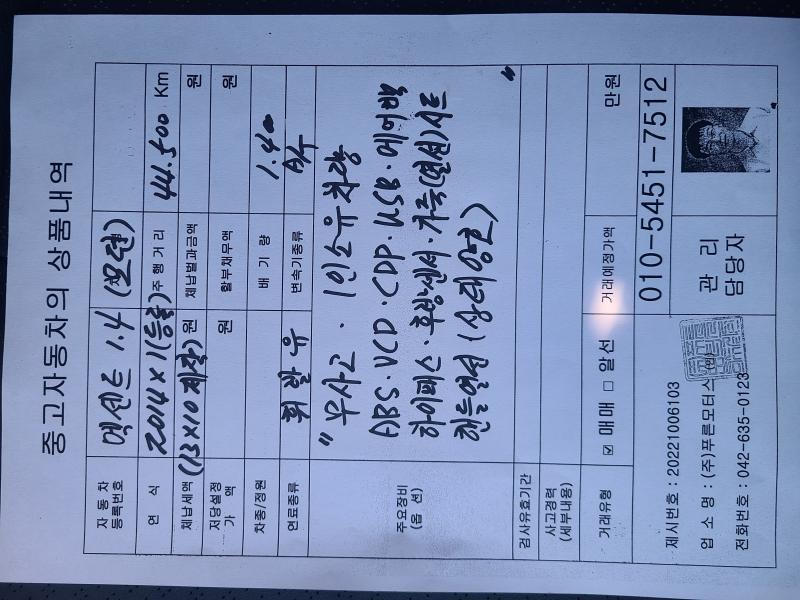 중고자동차의 상품내역
자동차 등록번호 엑센트 1.4
연 식 2014 x 1(등록) 주행거리 44.500 Km
체납세액 (13 x 10 제작) 원 체납벌과금액 원
저당설정 가 액 원 할부채무액 원
차종/정원 배 기 량 1.40
연료종류 휘발유 변속기종류 A/T
주요장비 (옵 션)
" 무사고 · 1인소유차량
ABS · VCD · CDP · USB · 에어백
하이패스 · 후방센서 · 가죽(열선)시트
핸들열선 (상태양호) "
검사유효기간
사고경력 (세부내용)
거래유형 ☑ 매매 □ 알선 거래예정가액 만원
제시번호 : 20221006103
업 소 명 : (주)푸른모터스 (인)
전화번호 : 042-635-0123
010-5451-7512
관 리 담당자